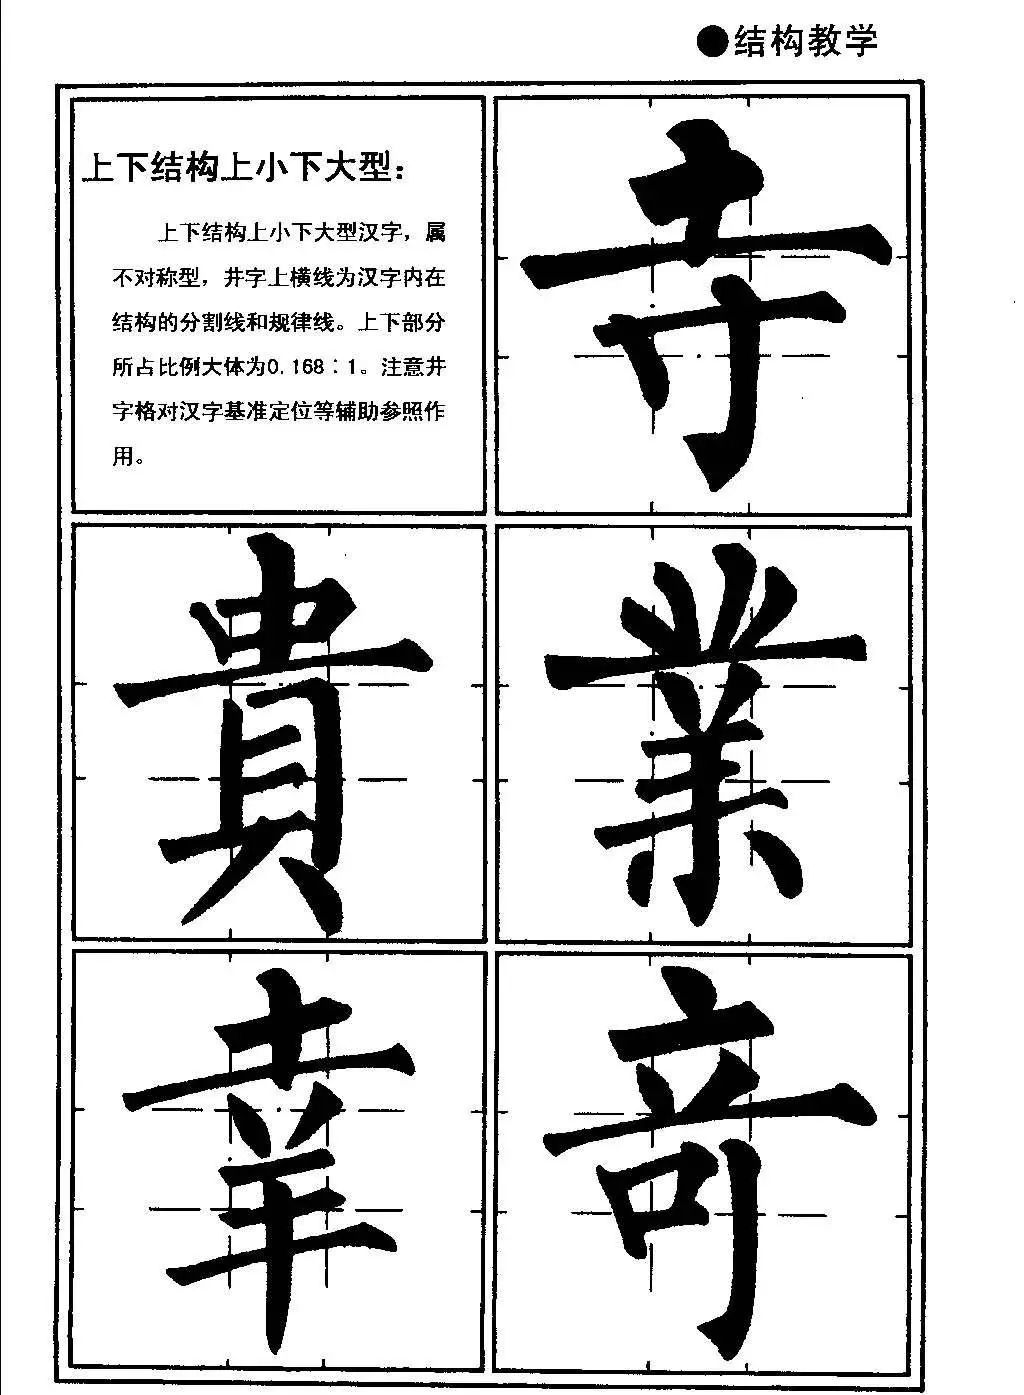 ●结构教学
上下结构上小下大型：
上下结构上小下大型汉字，属
不对称型，井字上横线为汉字内在
结构的分割线和规律线。上下部分
所占比例大体为0.168∶1。注意井
字格对汉字基准定位等辅助参照作
用。
寺
貴
業
幸
竒